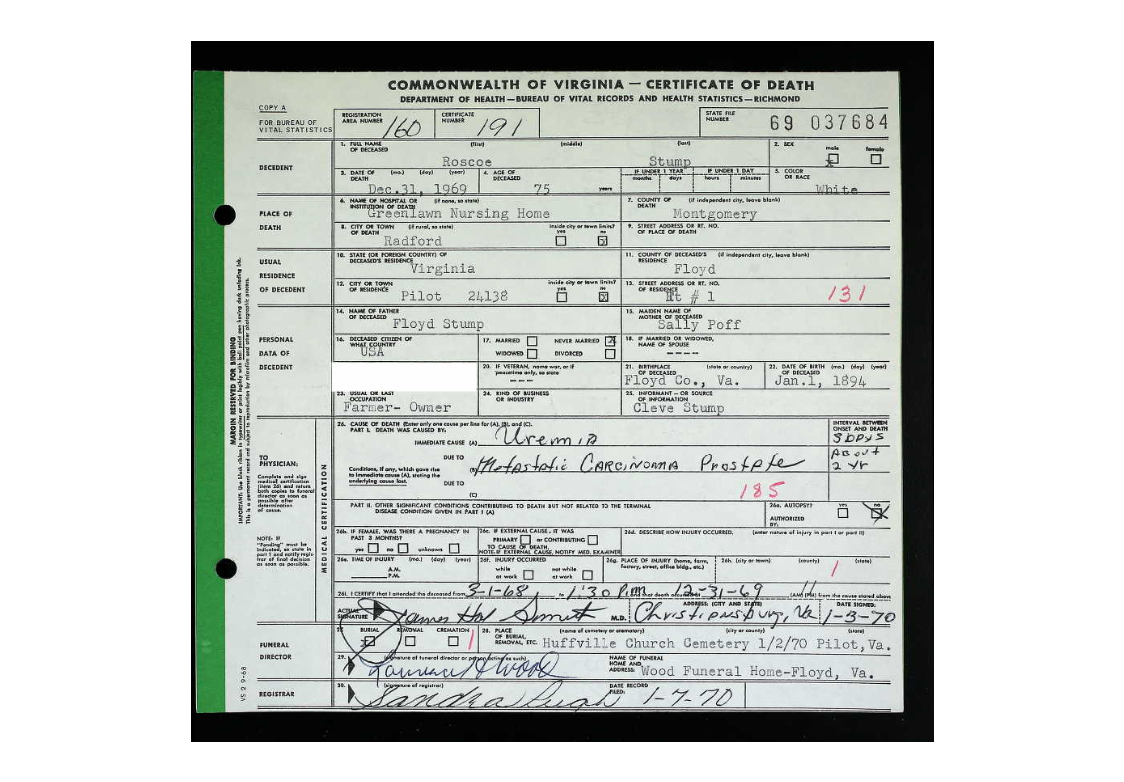 COMMONWEALTH OF VIRGINIA — CERTIFICATE OF DEATH
DEPARTMENT OF HEALTH—BUREAU OF VITAL RECORDS AND HEALTH STATISTICS—RICHMOND
COPY A
FOR BUREAU OF VITAL STATISTICS
REGISTRATION AREA NUMBER 160
CERTIFICATE NUMBER 191
STATE FILE NUMBER 69 037684
DECEDENT
1. FULL NAME OF DECEASED (first) (middle) (last)
Roscoe Stump
2. SEX male female
3. DATE OF DEATH (mo.) (day) (year)
Dec.31, 1969
4. AGE OF DECEASED
75 years
IF UNDER 1 YEAR months days
IF UNDER 1 DAY hours minutes
5. COLOR OR RACE
White
PLACE OF DEATH
6. NAME OF HOSPITAL OR INSTITUTION OF DEATH (if none, so state)
Greenlawn Nursing Home
7. COUNTY OF DEATH (if independent city, leave blank)
Montgomery
8. CITY OR TOWN OF DEATH (if rural, so state)
Radford
inside city or town limits? yes no
9. STREET ADDRESS OR RT. NO. OF PLACE OF DEATH
USUAL RESIDENCE OF DECEDENT
10. STATE (OR FOREIGN COUNTRY) OF DECEASED'S RESIDENCE
Virginia
11. COUNTY OF DECEASED'S RESIDENCE (if independent city, leave blank)
Floyd
12. CITY OR TOWN OF RESIDENCE
Pilot 24138
inside city or town limits? yes no
13. STREET ADDRESS OR RT. NO. OF RESIDENCE
Rt # 1
131
PERSONAL DATA OF DECEDENT
14. NAME OF FATHER OF DECEASED
Floyd Stump
15. MAIDEN NAME OF MOTHER OF DECEASED
Sally Poff
16. DECEASED CITIZEN OF WHAT COUNTRY
USA
17. MARRIED NEVER MARRIED
WIDOWED DIVORCED
18. IF MARRIED OR WIDOWED, NAME OF SPOUSE
----
20. IF VETERAN, name war, or if peacetime only, so state
---
21. BIRTHPLACE OF DECEASED (state or country)
Floyd Co., Va.
22. DATE OF BIRTH (mo.) (day) (year) OF DECEASED
Jan.1, 1894
23. USUAL OR LAST OCCUPATION
Farmer- Owner
24. KIND OF BUSINESS OR INDUSTRY
25. INFORMANT - OR SOURCE OF INFORMATION
Cleve Stump
MARGIN RESERVED FOR BINDING
TO PHYSICIAN:
Complete and sign medical certification (item 26) and return both copies to funeral director as soon as possible after determination of cause.
NOTE: IF "Pending" must be indicated, so state in part I and notify registrar of final decision as soon as possible.
MEDICAL CERTIFICATION
26. CAUSE OF DEATH (Enter only one cause per line for (A), (B), and (C).
PART I. DEATH WAS CAUSED BY:
INTERVAL BETWEEN ONSET AND DEATH
IMMEDIATE CAUSE (A) Uremia
3 Days
DUE TO
(B) Metastatic CARCINOMA Prostate
About 2 yr
Conditions, if any, which gave rise to immediate cause (A), stating the underlying cause last.
DUE TO
(C)
185
PART II. OTHER SIGNIFICANT CONDITIONS CONTRIBUTING TO DEATH BUT NOT RELATED TO THE TERMINAL DISEASE CONDITION GIVEN IN PART I (A)
26a. AUTOPSY? yes no
AUTHORIZED BY:
26b. IF FEMALE, WAS THERE A PREGNANCY IN PAST 3 MONTHS?
yes no unknown
26c. IF EXTERNAL CAUSE, IT WAS
PRIMARY or CONTRIBUTING
TO CAUSE OF DEATH.
NOTE: IF EXTERNAL CAUSE, NOTIFY MED. EXAMINER
26d. DESCRIBE HOW INJURY OCCURRED. (enter nature of injury in part I or part II)
26e. TIME OF INJURY (mo.) (day) (year)
A.M.
P.M.
26f. INJURY OCCURRED
while at work not while at work
26g. PLACE OF INJURY (home, farm, factory, street, office bldg., etc.)
26h. (city or town) (county) (state)
1
26i. I CERTIFY that I attended the deceased from 3-1-68 to 1:30 P.m. and that death occurred 12-31-69 (AM) (PM) from the cause stated above
ACTUAL SIGNATURE
M.D.
ADDRESS: (CITY AND STATE)
Christiansburg, Va
DATE SIGNED:
1-3-70
FUNERAL DIRECTOR
BURIAL REMOVAL CREMATION
1
28. PLACE OF BURIAL, REMOVAL, ETC. (name of cemetery or crematory) (city or county) (state)
Huffville Church Cemetery 1/2/70 Pilot,Va.
29. (signature of funeral director or person acting as such)
NAME OF FUNERAL HOME AND ADDRESS:
Wood Funeral Home-Floyd, Va.
REGISTRAR
30. (signature of registrar)
DATE RECORD FILED:
1-7-70
VS 2 9-68